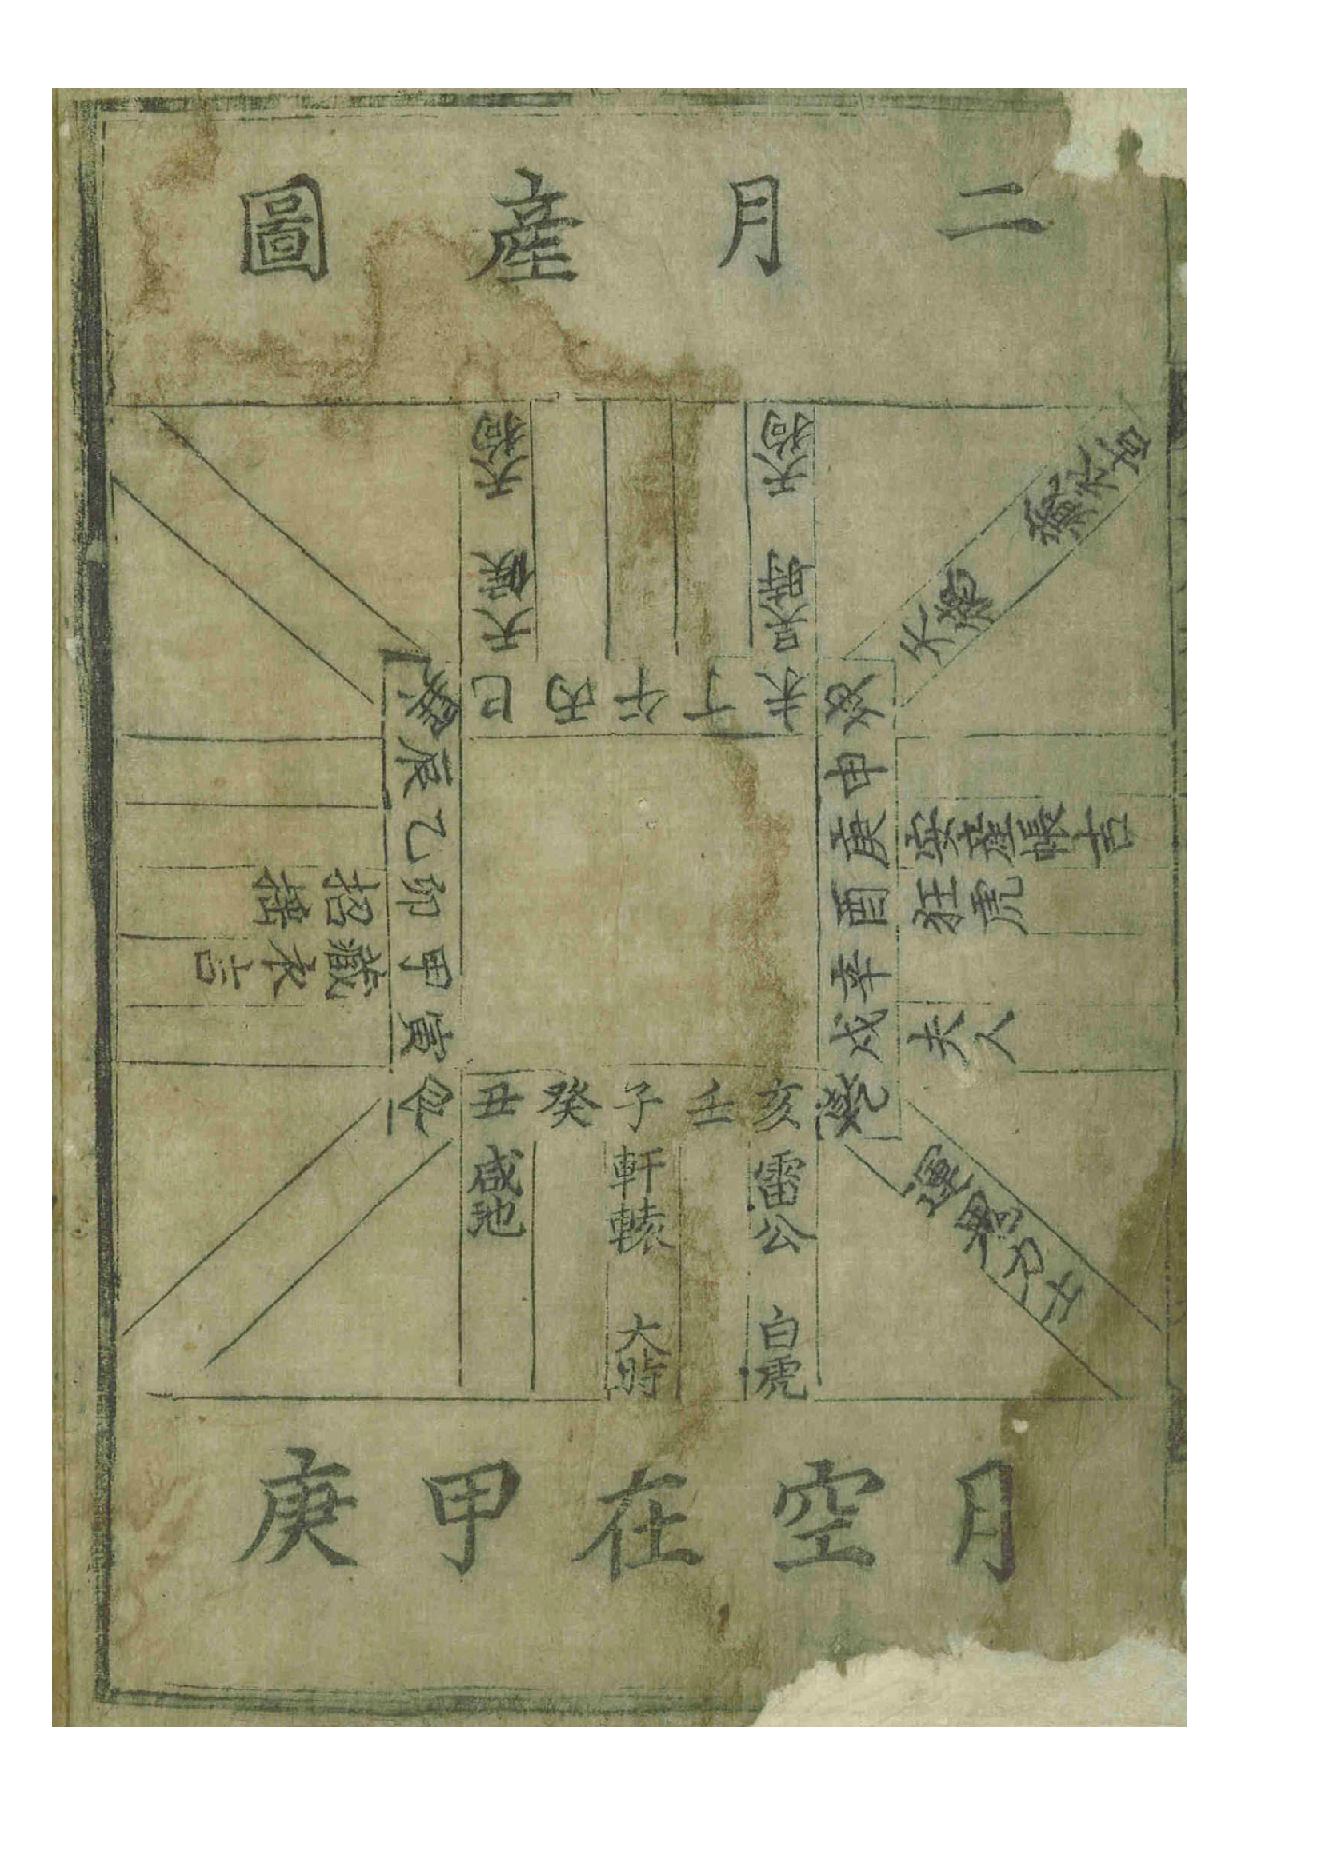 二月產圖
天候 天狗
吴時 天狗
藏衣吉
巽巳丙午丁未
申庚酉辛戌
乾亥壬子癸丑艮
寅甲卯乙辰
安產帳吉
狂虎
夫人
運鬼力士
雷公 白虎
軒轅 大時
咸池
藏水吉
招搖
月空在甲庚